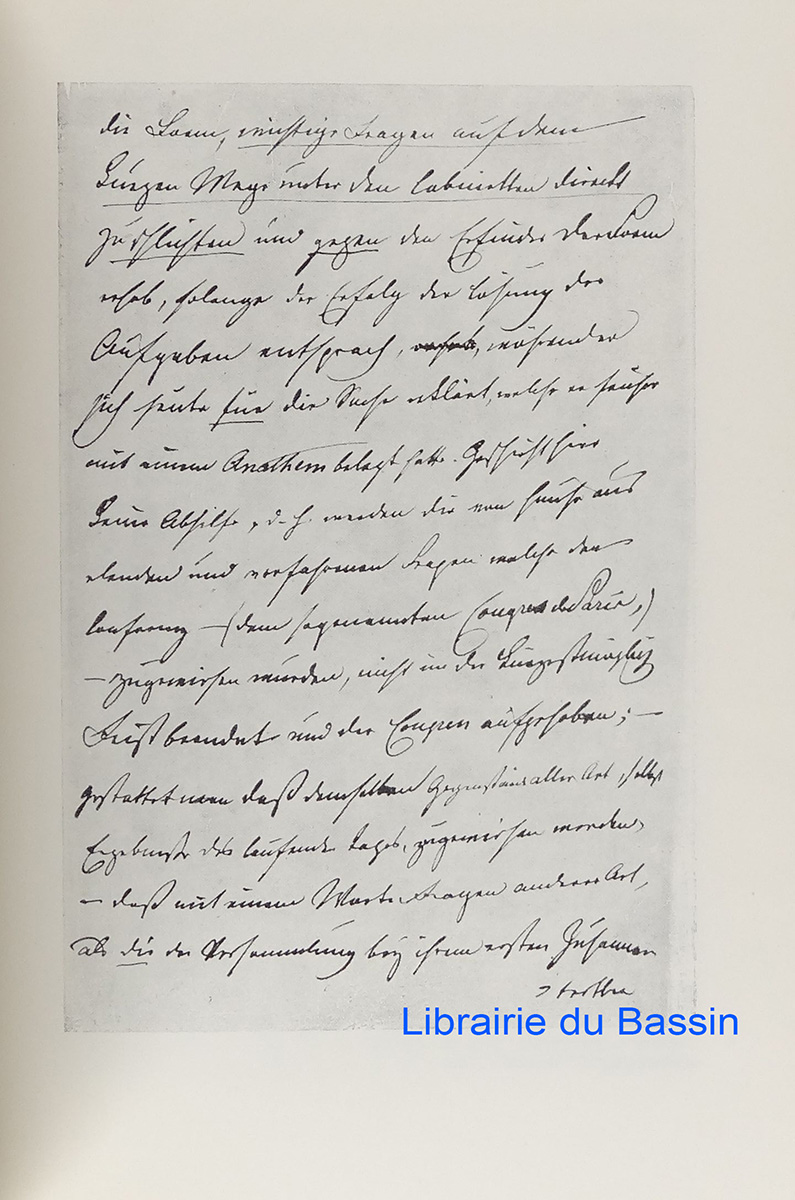 die Form, wichtige Fragen auf dem
kurzen Wege unter den Cabinetten direckt
zu schlichten und gegen den Erfinder der Form
erhob, solange der Erfolg der Lösung der
Aufgaben entsprach, während er
sich heute für die Sache erklärt, welche er früher
mit einem Anathem belegt hatte. Geschieht hier
keine Abhilfe, d. h. werden die von Hause aus
elenden und verfahrenen Fragen welche der
Conferenz — (dem sogenannten Congres de Paris,)
— zugewiesen wurden, nicht in der kürzestmöglichen
Frist beendet und der Congress aufgehoben; —
gestattet man daß demselben Gegenstände aller Art, selbst
Ergebnisse des laufenden Tages, zugewiesen werden,
— daß mit einem Worte Fragen anderer Art,
als die der Versammlung bey ihrem ersten Zusammen
Librairie du Bassin